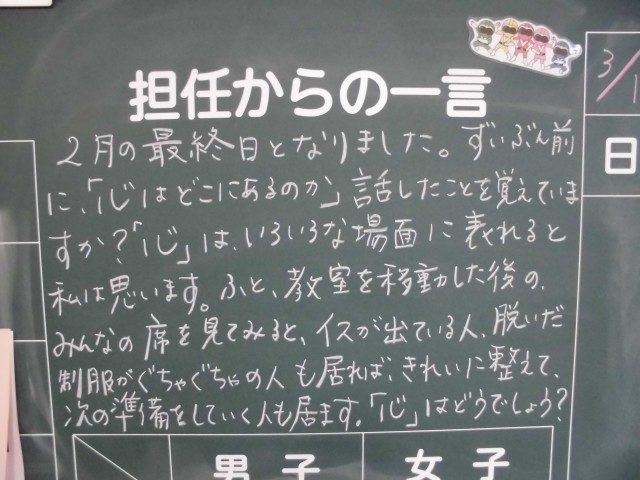 担任からの一言
3/1
日
2月の最終日となりました。ずいぶん前
に、「心はどこにあるのか」話したことを覚えていま
すか?「心」は、いろいろな場面に表れると
私は思います。ふと、教室を移動した後の、
みんなの席を見てみると、イスが出ている人、脱いだ
制服がぐちゃぐちゃの人も居れば、きれいに整えて、
次の準備をしていく人も居ます。「心」はどうでしょう?
男子
女子